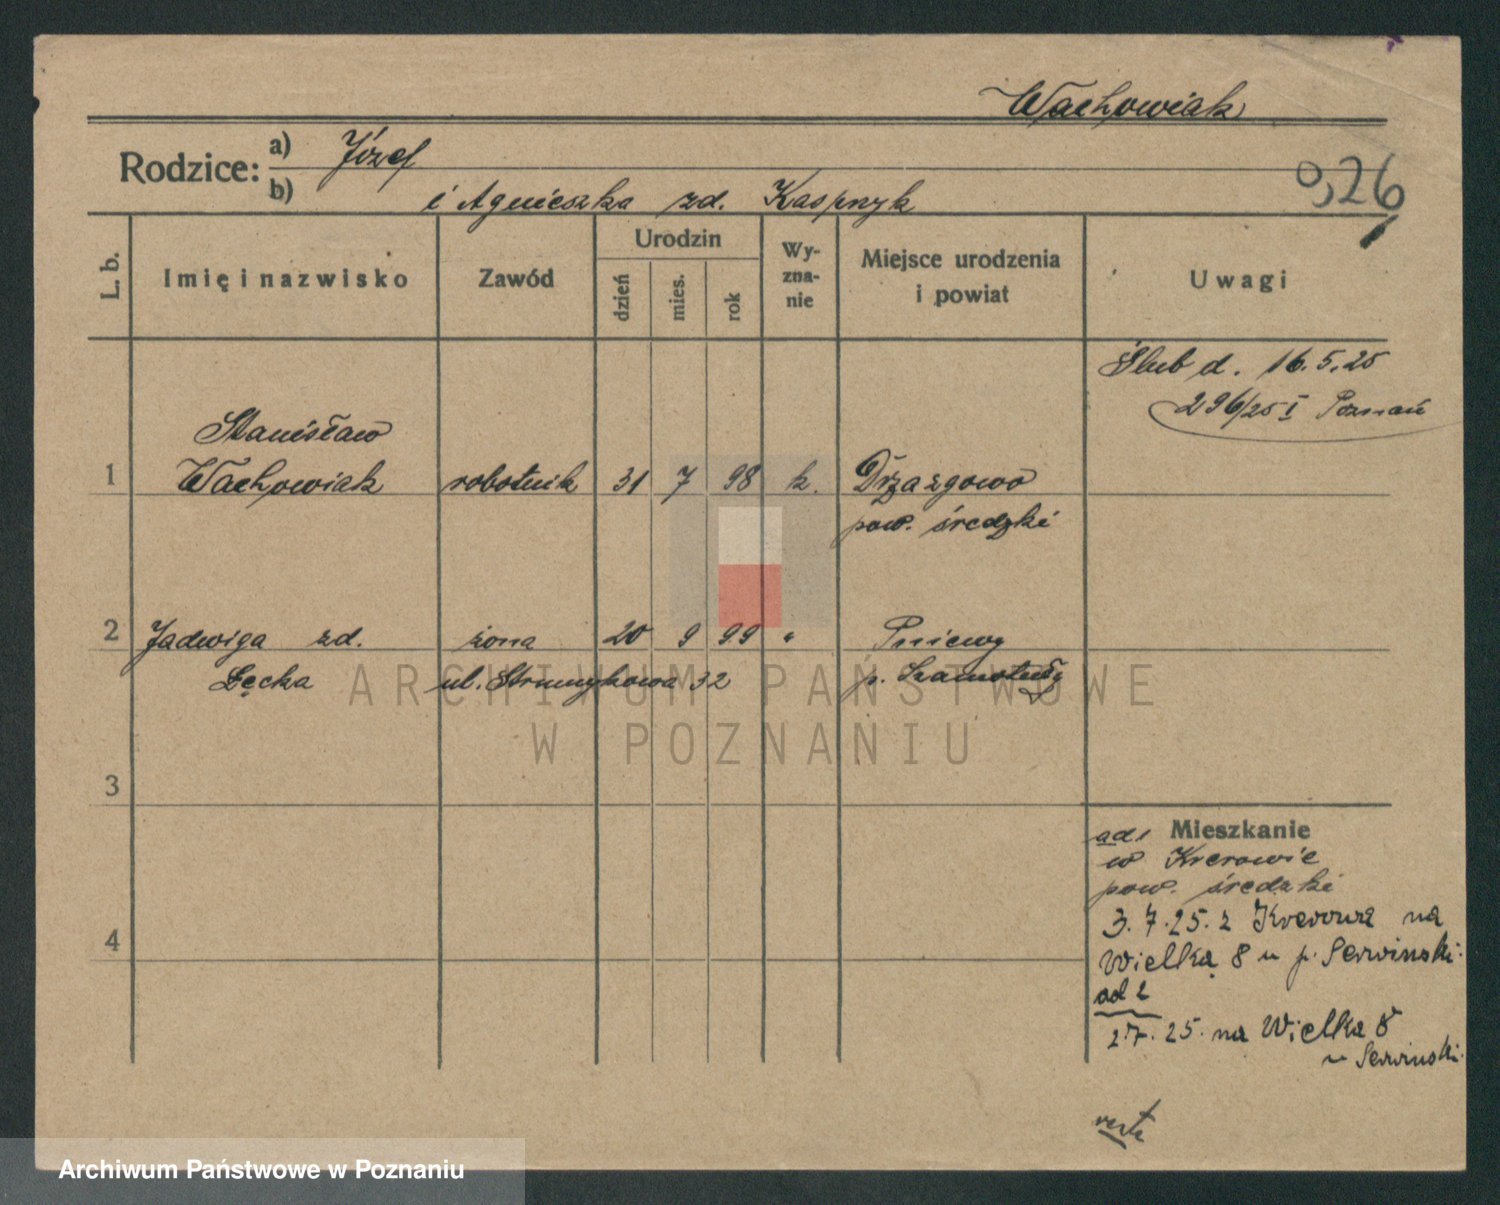 Wachowiak
Rodzice: a) Józef
b) i Agnieszka zd. Kasprzyk
0,26
L. b.
Imię i nazwisko
Zawód
Urodzin
dzień
mies.
rok
Wy-
zna-
nie
Miejsce urodzenia
i powiat
Uwagi
Ślub d. 16.5.25
296/25 I Poznań
Stanisław
1 Wachowiak robotnik 31 7 98 k. Drzazgowo
pow. średzki
2 Jadwiga zd. żona 20 9 99 " Pniewy
Łęcka ul. Strumykowa 32 p. Szamotuły
3
4
ad 1 Mieszkanie
w Krerowie
pow. średzki
3.7.25. z Krerowa na
Wielką 8 u p. Serwinski.
ad 2
2.7.25. na Wielka 8
u Serwinski.
verte
ARCHIWUM PAŃSTWOWE
W POZNANIU
Archiwum Państwowe w Poznaniu